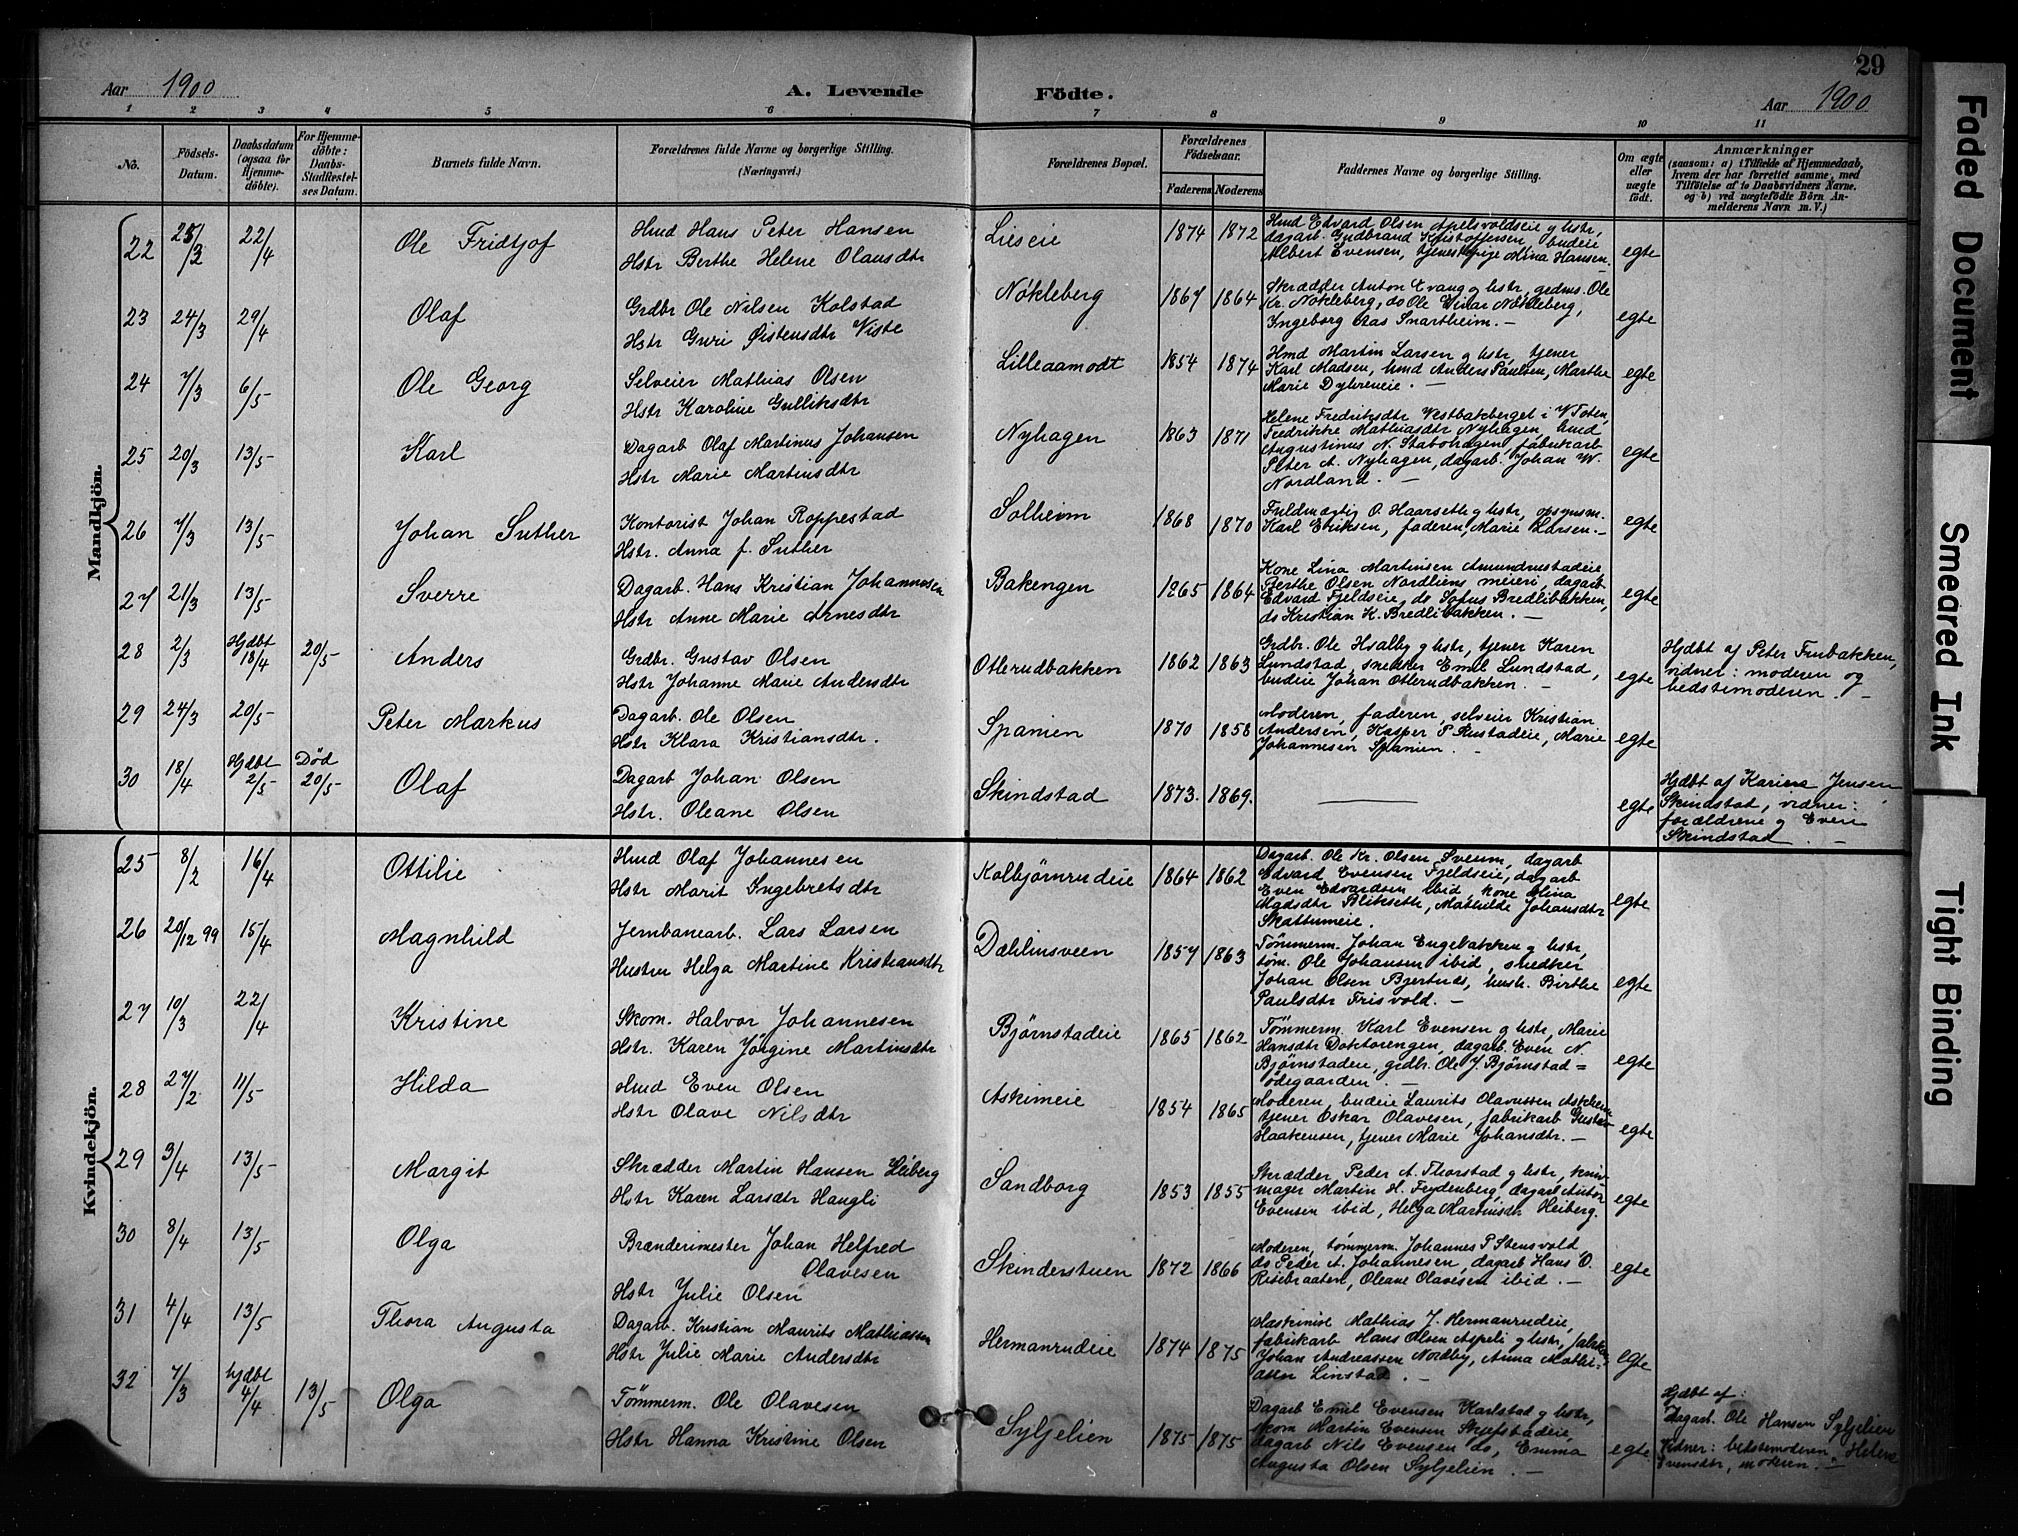 29
Aar 1900
A. Levende Fødte.
Aar 1900
1 2 3 4 5 6 7 8 9 10 11
No.
Fødsels-
Datum.
Daabsdatum
(ogsaa for
Hjemme-
döbte).
For Hjemme-
döbte:
Daabs-
Stadfæstel-
ses Datum.
Barnets fulde Navn.
Forældrenes fulde Navne og borgerlige Stilling.
(Næringsvei.)
Forældrenes Bopæl.
Forældrenes
Födselsaar.
Faderens Moderens
Faddernes Navne og borgerlige Stilling.
Om ægte
eller
uægte
födt.
Anmærkninger
(saasom: a) i Tilfælde af Hjemmedaab,
hvem der har forrettet samme, med
Tilföielse af to Daabsvidners Navne.
og b) ved uægtefödte Börn An-
melderens Navn m. V.)
Mandkjön.
22 25/3 22/4 Ole Fridtjof
Hmd Hans Peter Hansen
Hstr Berthe Helene Olausdtr
Lieseie 1874 1872
Hmd Edvard Olsen Apelsvoldseie g hstr,
dagarb. Gudbrand Kristoffersen budeie
Albert Evensen, tjenestepige Mina Hansen.
egte
23 24/3 29/4 Olaf
Grdbr Ole Nilsen Kolstad
Hstr Guri Østensdtr Viste
Nökleberg 1867 1864
Skrædder Anton Evang g hstr, grdms. Ole
Kr. Nökleberg, do Ole Einar Nökleberg,
Ingeborg Aas Snartheim. —
egte
24 7/3 6/5 Ole Georg
Selveier Mathias Olsen
Hstr Karoline Gulliksdtr
Lilleaamodt 1854 1874
Hmd Martin Larsen g hstr, tjener
Karl Madsen, hmd Anders Paulsen, Marthe
Marie Dybreneie. —
egte
25 20/3 13/5 Karl
Dagarb Olaf Martinus Johansen
Hstr Marie Martinsdtr
Nyhagen 1863 1871
Helene Fredriksdtr Vestbakberget i V Toten,
Fredrikke Mathiasdtr Nyhagen, hmd
Augustinus N. Stabohagen, fabrikarb
Peter A. Nyhagen, dagarb. Johan W.
Nordland. —
egte
26 7/3 13/5 Johan Suther
Kontorist Johan Roppestad
Hstr. Anna f. Suther
Solheim 1868 1870
Fuldmægtig O. Haarseth g hstr, opsynsm.
Karl Eriksen, faderen, Marie Larsen. —
egte
27 21/3 13/5 Sverre
Dagarb. Hans Kristian Johannesen
Hstr Anne Marie Arnesdtr
Bakengen 1865 1864
Kone Lina Martinsen Amundrustadeie,
Berthe Olsen Nordliens meieri, dagarb
Edvard Fjeldseie, do Sofus Bredlibakken,
do Kristian K. Bredlibakken. —
egte
28 2/3 Hjdbt 18/4 20/5 Anders
Grdbr. Gustav Olsen
Hstr Johanne Marie Andersdtr
Otterudbakken 1862 1863
Grdbr. Ole Hsalby g hstr, tjener Karen
Lundstad, snekker Emil Lundstad,
budeie Johan Otterudbakken. —
egte
Hjdbt af Peter Frubakken,
vidner: moderen og
bedstemoderen. —
29 24/3 20/5 Peter Markus
Dagarb. Ole Olsen
Hstr Klara Kristiansdtr.
Spanien 1870 1858
Moderen, faderen, selveier Kristian
Andersen, Kasper P. Rustadeie, Marie
Johannesen Spanien. —
egte
30 18/4 Hjdbt 2/5 Död 20/5 Olaf
Dagarb Johan Olsen
Hstr. Oleane Olsen
Skindstad 1873. 1869.
—
egte
Hjdbt af Karine Jensen
Skindstad, vidner:
forældrene g Even
Skindstad. —
Kvindekjön.
25 8/2 16/4 Ottilie
Hmd Olaf Johannesen
Hstr Marit Ingebretsdtr
Kolbjørnrudeie 1864 1862
Dagarb. Ole Kr. Olsen Sveum, dagarb
Edvard Evensen Fjeldseie, dagarb
Even Edvardsen ibid, kone Mina
Madsdtr Blikseth, Mathilde Johansdtr
Skattumeie.
egte
26 20/12 99 15/4 Magnhild
Jernbanearb. Lars Larsen
Hustru Helga Martine Kristiansdtr
Dæhlinsveen 1857 1863
Tømmerm. Johan Engebakken g hstr,
töm. Ole Johansen ibid, snedker
Johan Olsen Bjertnæs, hush. Birthe
Paulsdtr Frisvold. —
egte
27 10/3 22/4 Kristine
Skom. Halvor Johannesen
Hstr. Karen Jörgine Martinsdtr
Bjørnstadeie 1865 1862
Tømmerm. Karl Evensen g hstr, Marie
Hansdtr Doktorengen, dagarb. Even N.
Bjørnstadeie, grdbr. Ole J. Bjørnstad=
ødegaarden. —
egte
28 27/2 11/5 Hilda
Hmd Even Olsen
Hstr Olave Nilsdtr
Askimeie 1854 1865
Moderen, budeie Laurits Olavessen Askimeie
tjener Oskar Olavesen, fabrikarb Gustav
Haakensen, tjener Marie Johansdtr. —
egte
29 3/4 13/5 Margit
Skrædder Martin Hansen Heiberg
Hstr Karen Larsdtr Haugli
Sandborg 1853 1855
Skrædder Peder A. Thorstad g hstr,
mager Martin H. Frydenberg, dagarb Anton
Evensen ibid, Helga Martinsdtr Heiberg.
egte
30 8/4 13/5 Olga
Brænderimester Johan Helfred
Olavesen
Hstr Julie Olsen
Skinderstuen 1872 1866
Moderen, tømmerm. Johannes P Stensvold
do Peder A. Johannesen, dagarb Hans O.
Risebraaten, Oleane Olavesen ibid. —
egte
31 4/4 13/5 Thora Augusta
Dagarb. Kristian Maurits Mathiassen
Hstr Julie Marie Andersdtr
Hermanrudeie 1874 1875
Maskinist Mathias J. Hermanrudeie,
fabrikarb Hans Olsen Aspeli g hstr,
Johan Andreassen Nordby, Anna Mathi-
asen Linstad. —
egte
32 7/3 hjdbt 4/4 13/5 Olga
Tömmerm. Ole Olavesen
Hstr Hanna Kristine Olsen
Syljelien 1875 1875
Dagarb Emil Evensen Karlstad g hstr,
skom Martin Evensen Skjefstadeie,
dagarb Nils Evensen do, Emma
Augusta Olsen Syljelien. —
egte
Hjdbt af:
Dagarb. Ole Hansen Syljelien
Vidner: bedstemoderen Helene
Svensdtr, moderen. —
Faded Document
Smeared Ink
Tight Binding